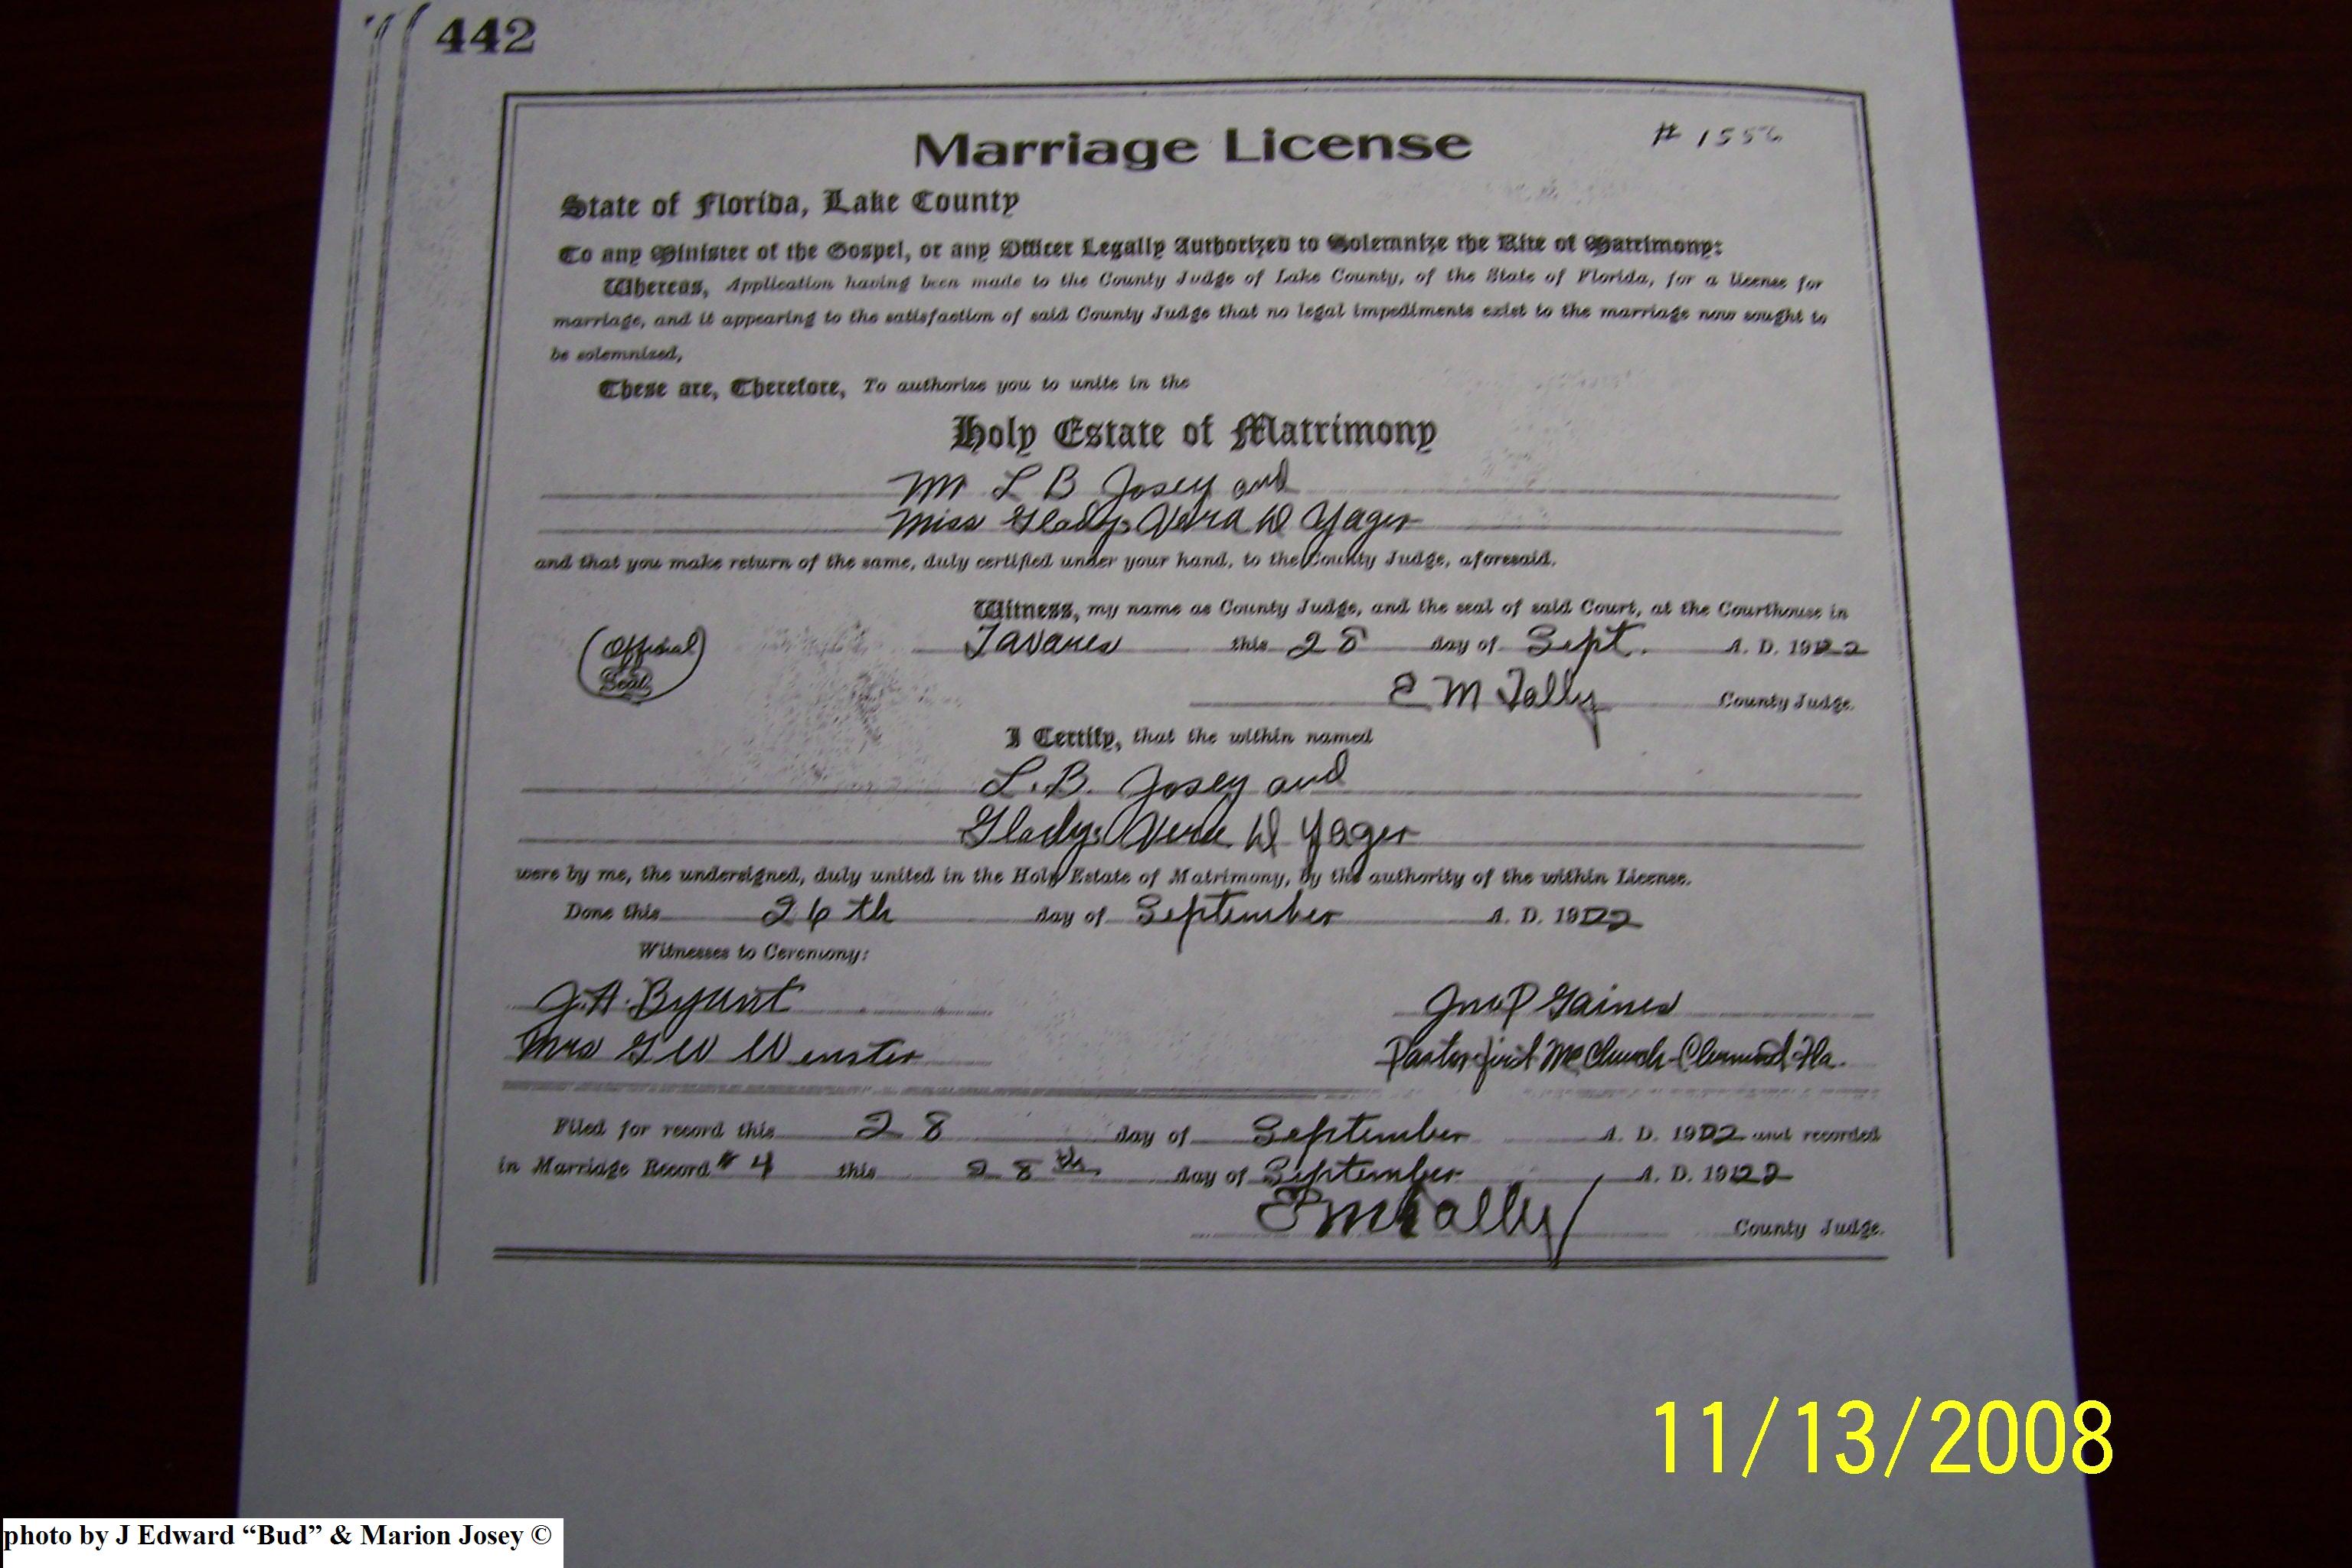 442
Marriage License
# 1556
State of Florida, Lake County
To any Minister of the Gospel, or any Officer Legally Authorized to Solemnize the Rite of Matrimony:
Whereas, Application having been made to the County Judge of Lake County, of the State of Florida, for a license for
marriage, and it appearing to the satisfaction of said County Judge that no legal impediments exist to the marriage now sought to
be solemnized,
These are, Therefore, To authorize you to unite in the
Holy Estate of Matrimony
Mr L B Josey and
Miss Gladys Vera D Yager
and that you make return of the same, duly certified under your hand, to the County Judge, aforesaid.
Witness, my name as County Judge, and the seal of said Court, at the Courthouse in
(Official Seal) Tavares this 28 day of Sept. A. D. 1922
E M Tally County Judge.
I Certify, that the within named
L. B. Josey and
Gladys Vera D Yager
were by me, the undersigned, duly united in the Holy Estate of Matrimony, by the authority of the within License.
Done this 26th day of September A. D. 1922
Witnesses to Ceremony:
J. A. Byant Jno P Gaines
Mrs G W Wenster Pastor First ME Church Clermont Fla.
Filed for record this 28 day of September A. D. 1922 and recorded
in Marridge Record # 4 this 28th day of September A. D. 1922
E M Tally County Judge.
11/13/2008
photo by J Edward “Bud” & Marion Josey ©